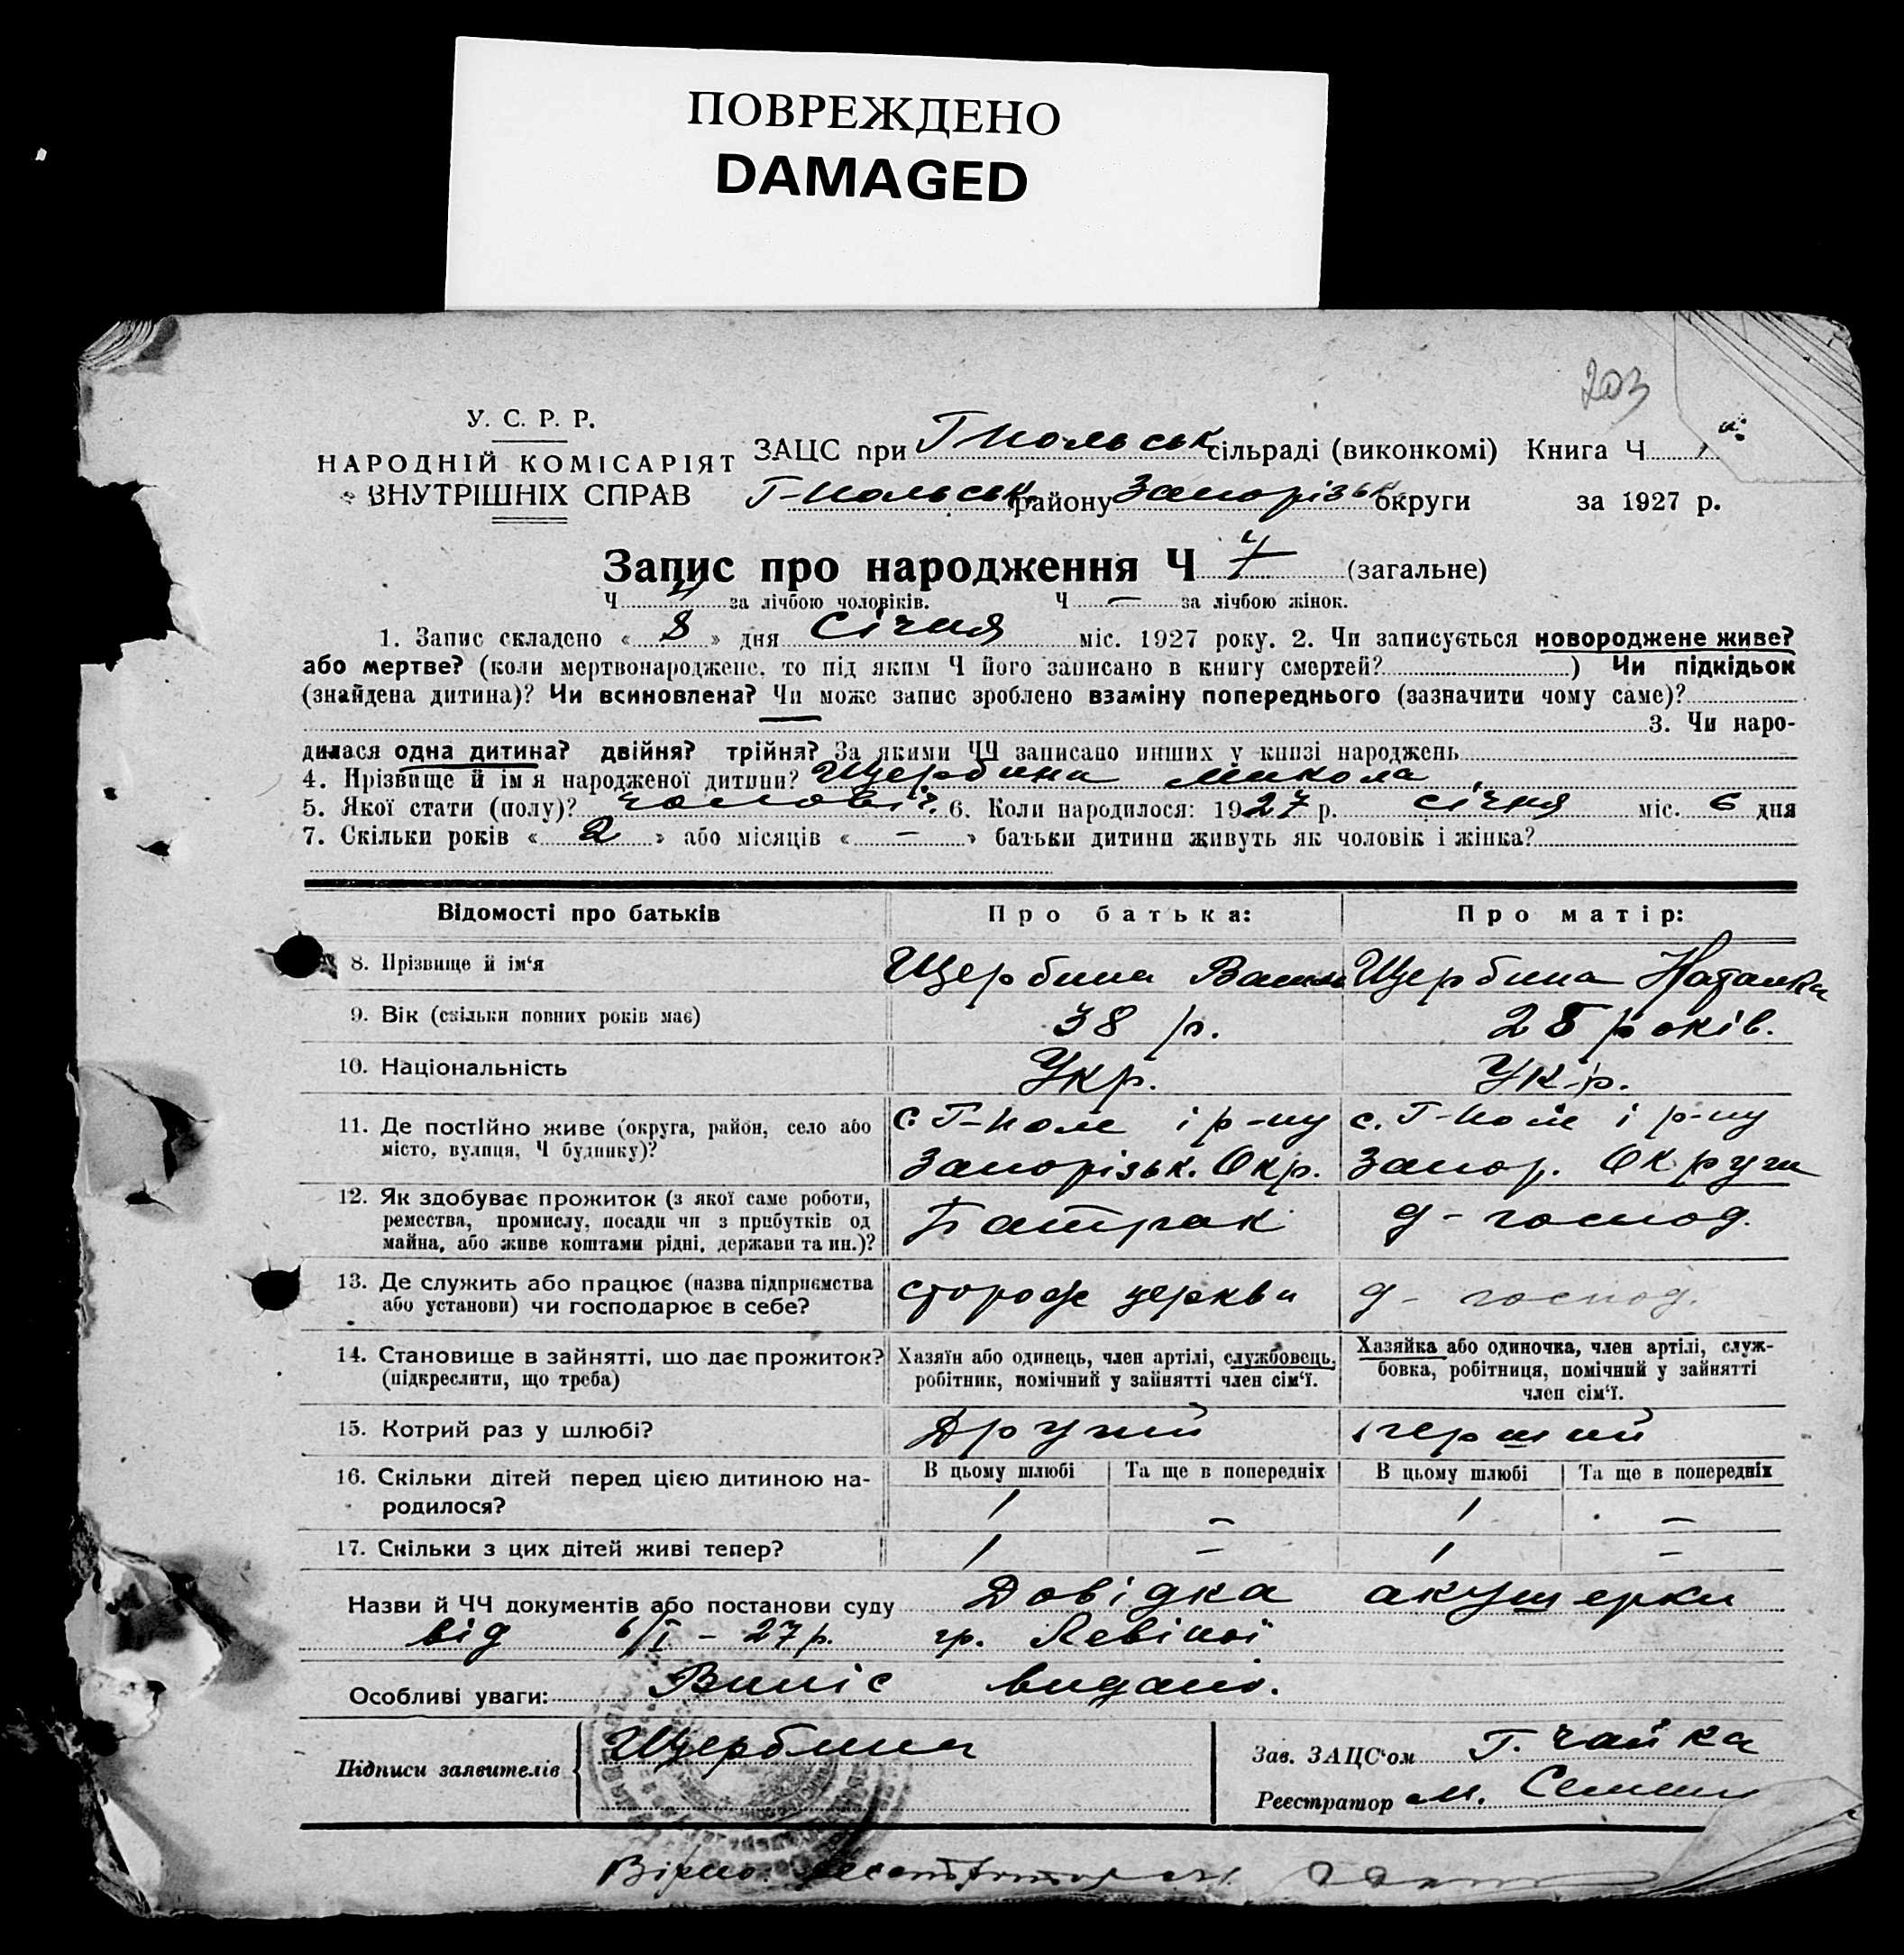 ПОВРЕЖДЕНО
DAMAGED
203
У. С. Р. Р.
НАРОДНІЙ КОМІСАРІЯТ
ВНУТРІШНІХ СПРАВ
ЗАЦС при Гпольськ сільраді (виконкомі) Книга Ч
Г-польськ. району Запорізьк. округи за 1927 р.
Запис про народження Ч 7 (загальне)
Ч 4 за лічбою чоловіків. Ч — за лічбою жінок.
1. Запис складено « 8 » дня Січня міс. 1927 року. 2. Чи записується новороджене живе?
або мертве? (коли мертвонароджене, то під яким Ч його записано в книгу смертей? ) Чи підкідьок
(знайдена дитина)? Чи всиновлена? Чи може запис зроблено взаміну попереднього (зазначити чому саме)?
3. Чи наро-
дилася одна дитина? двійня? трійня? За якими ЧЧ записано инших у книзі народжень
4. Прізвище й ім'я народженої дитини? Щербина Микола
5. Якої стати (полу)? чоловіч. 6. Коли народилося: 1927 р. січня міс. 6 дня
7. Скільки років « 2 » або місяців « — » батьки дитини живуть як чоловік і жінка?
Відомості про батьків Про батька: Про матір:
8. Прізвище й ім'я Щербина Василь Щербина Наталка
9. Вік (скільки повних років має) 38 р. 28 років.
10. Національність Укр. Укр.
11. Де постійно живе (округа, район, село або
місто, вулиця, Ч будинку)?
с. Г-поле і р-ну
Запорізьк. Окр.
с. Г-поле і р-ну
Запор. Округи
12. Як здобуває прожиток (з якої саме роботи,
ремества, промислу, посади чи з прибутків од
майна, або живе коштами рідні, держави та ин.)?
Батрак
д-господ.
13. Де служить або працює (назва підприємства
або установи) чи господарює в себе?
сторож церкви
д-господ.
14. Становище в зайнятті, що дає прожиток?
(підкреслити, що треба)
Хазяїн або одинець, член артілі, службовець,
робітник, помічний у зайнятті член сім'ї.
Хазяйка або одиночка, член артілі, служ-
бовка, робітниця, помічний у зайнятті
член сім'ї.
15. Котрий раз у шлюбі? Другий перший
16. Скільки дітей перед цією дитиною на-
родилося?
В цьому шлюбі Та ще в попередніх В цьому шлюбі Та ще в попередніх
1 — 1 —
17. Скільки з цих дітей живі тепер? 1 — 1 —
Назви й ЧЧ документів або постанови суду Довідка акушерки
від 6/I – 27 р. гр. Левіної
Особливі уваги: Випіс видано.
Підписи заявителів Щербина
Зав. ЗАЦС'ом Г. Чайка
Реєстратор М.
Вірно: